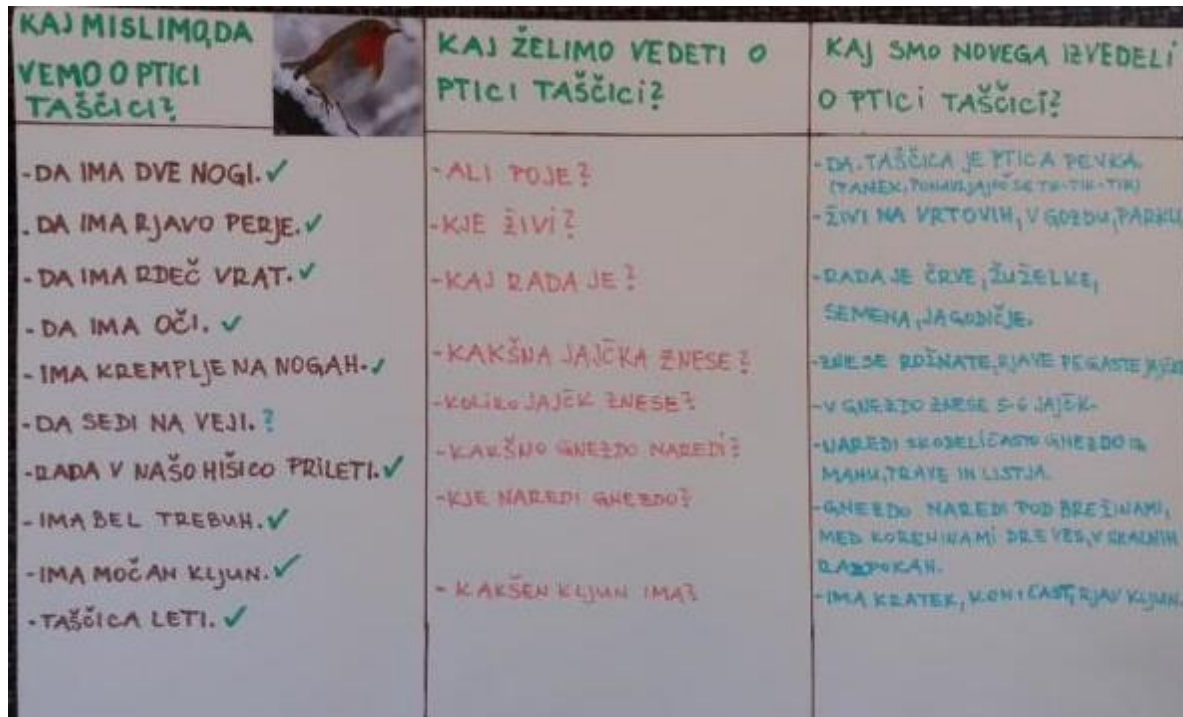 KAJ MISLIMO, DA
VEMO O PTICI
TAŠČICI?
-DA IMA DVE NOGI. ✓
. DA IMA RJAVO PERJE. ✓
-DA IMA RDEČ VRAT. ✓
-DA IMA OČI. ✓
-IMA KREMPLJE NA NOGAH. ✓
-DA SEDI NA VEJI. ?
-RADA V NAŠO HIŠICO PRILETI. ✓
-IMA BEL TREBUH. ✓
-IMA MOČAN KLJUN. ✓
-TAŠČICA LETI. ✓
KAJ ŽELIMO VEDETI O
PTICI TAŠČICI?
-ALI POJE?
-KJE ŽIVI?
-KAJ RADA JE?
-KAKŠNA JAJČKA ZNESE?
-KOLIKO JAJČK ZNESE?
-KAKŠNO GNEZDO NAREDI?
-KJE NAREDI GNEZDO?
-KAKŠEN KLJUN IMA?
KAJ SMO NOVEGA IZVEDELI
O PTICI TAŠČICI?
-DA. TAŠČICA JE PTICA PEVKA.
(TANEK, PONAVLJAJOČ SE TIK-TIK-TIK)
-ŽIVI NA VRTOVIH, V GOZDU, PARKU
-RADA JE ČRVE, ŽUŽELKE,
SEMENA, JAGODIČJE.
-ZNESE RJAVE PEGASTE
-V GNEZDO ZNESE 5-6 JAJČK.
-NAREDI SKODELIČASTO GNEZDO IZ
MAHU, TRAVE IN LISTJA.
-GNEZDO NAREDI POD BREŽINAMI,
MED KORENINAMI DREVES, V SKALNIH
RAZPOKAH.
-IMA KRATEK, KONIČAST, RJAV KLJUN.